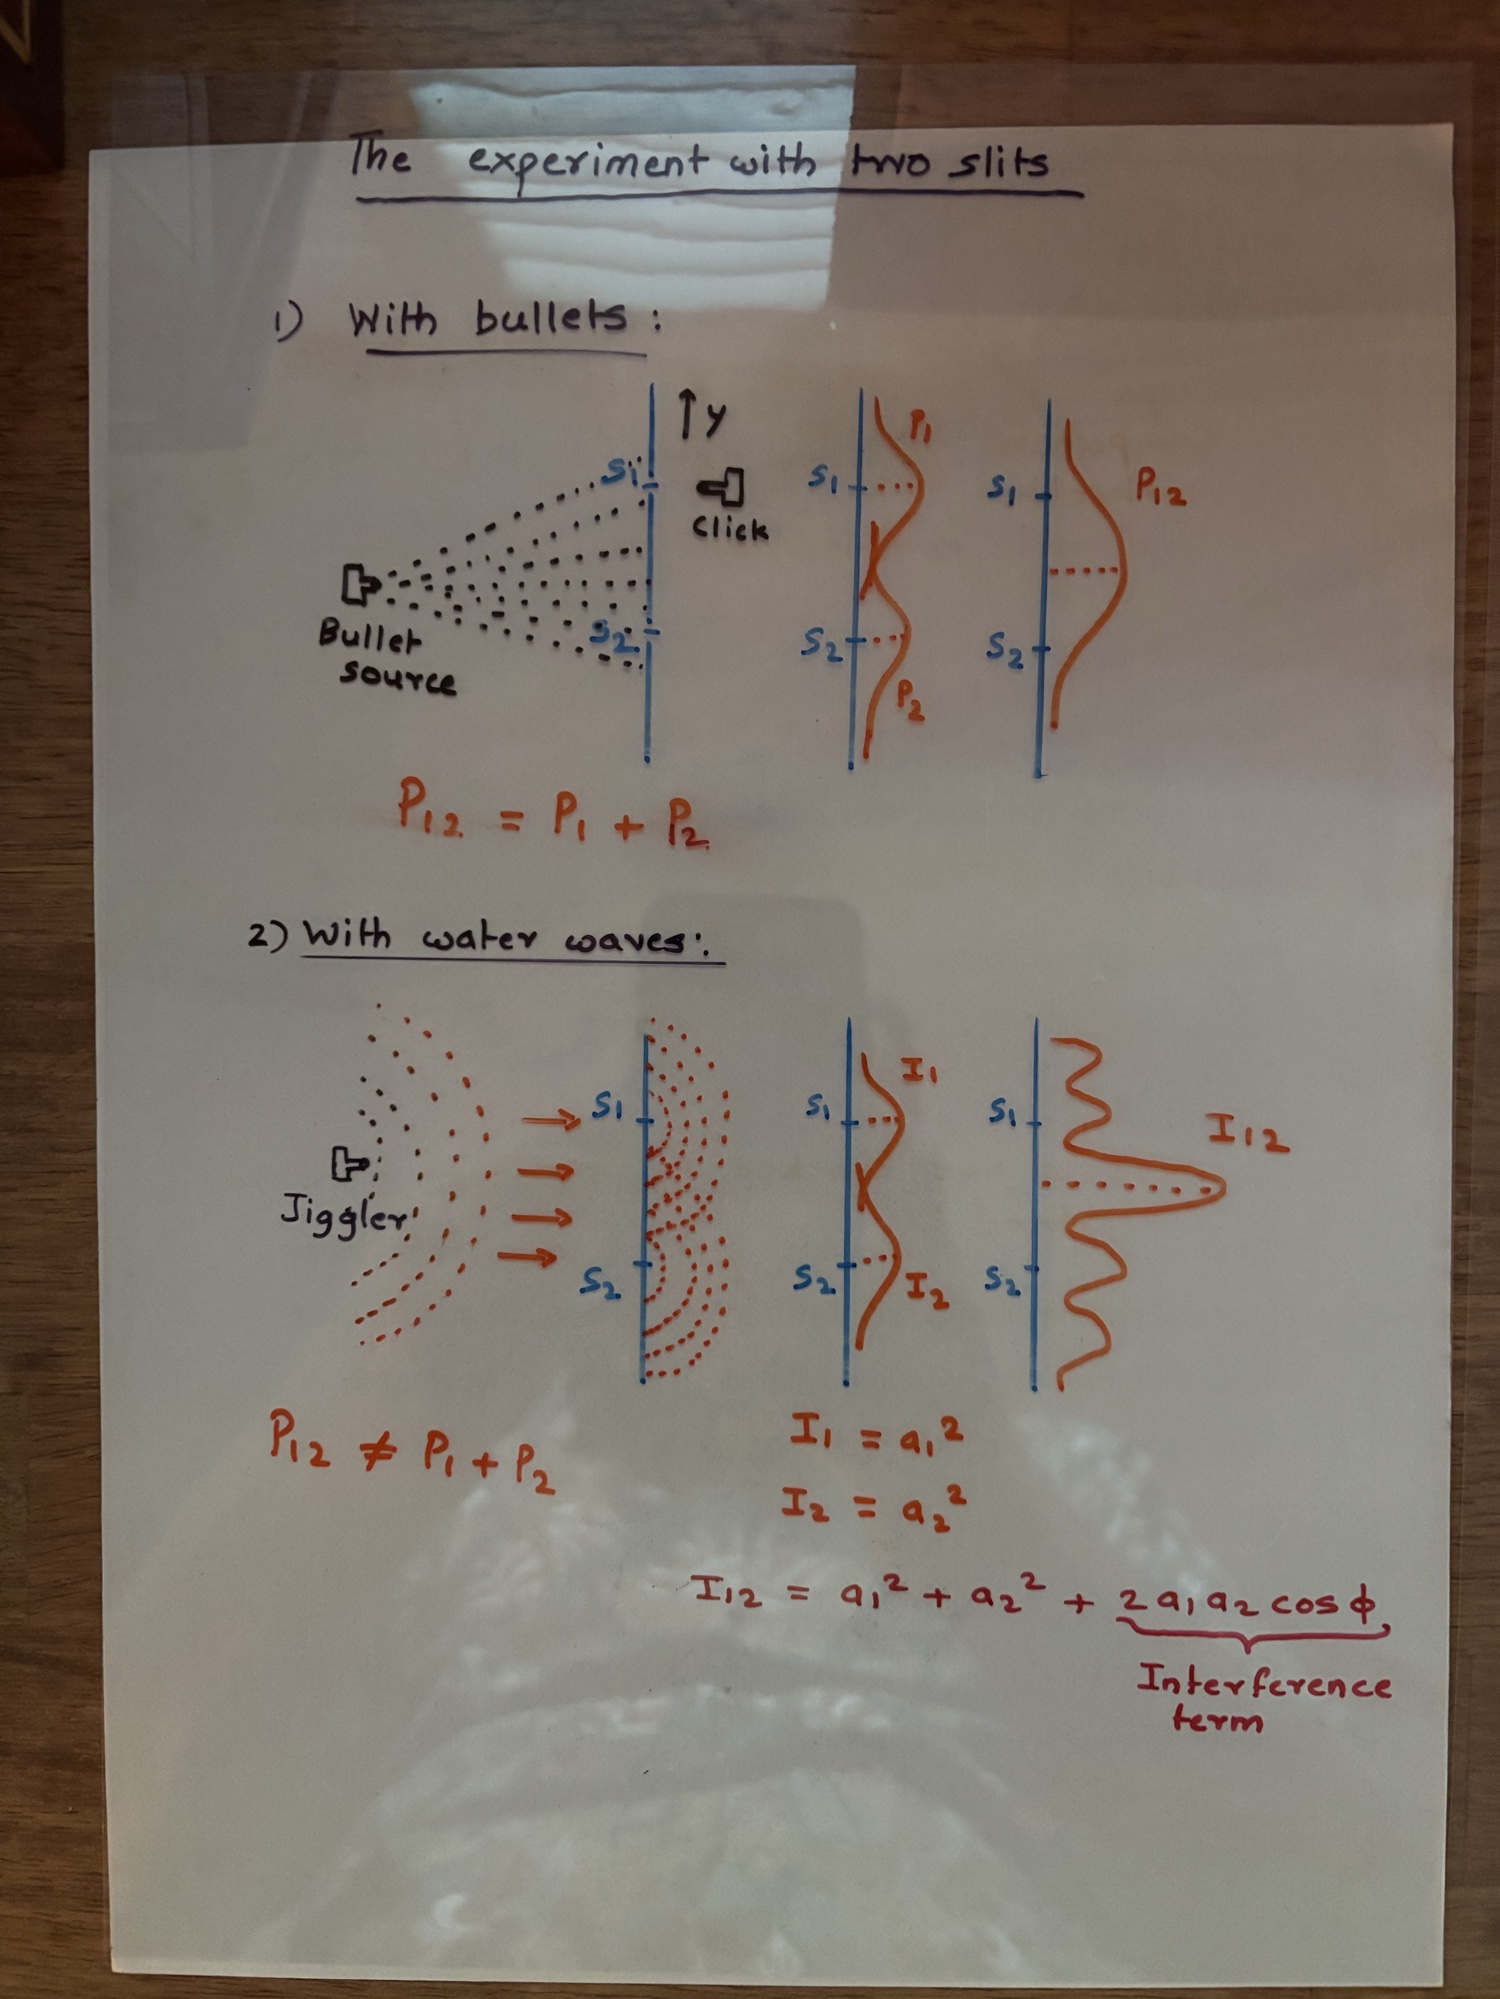 The experiment with two slits
1) With bullets :
↑ y
S1
Click
S2
Bullet
source
S1
P1
S2
P2
S1
P12
S2
P12 = P1 + P2
2) With water waves :
Jiggler
S1
S2
S1
I1
S2
I2
S1
I12
S2
P12 ≠ P1 + P2
I1 = a1²
I2 = a2²
I12 = a1² + a2² + 2 a1 a2 cos ϕ
Interference
term